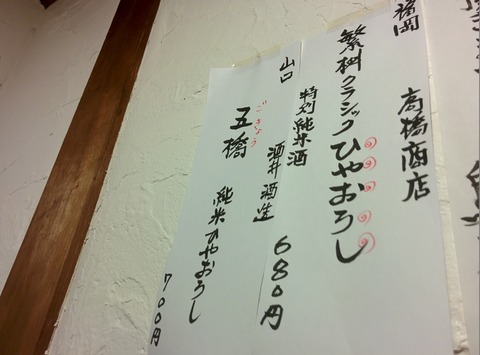 福岡
高橋商店
繁桝クラシックひやおろし
特別純米酒
680円
山口
酒井酒造
ごきょう
五橋
純米ひやおろし
700円